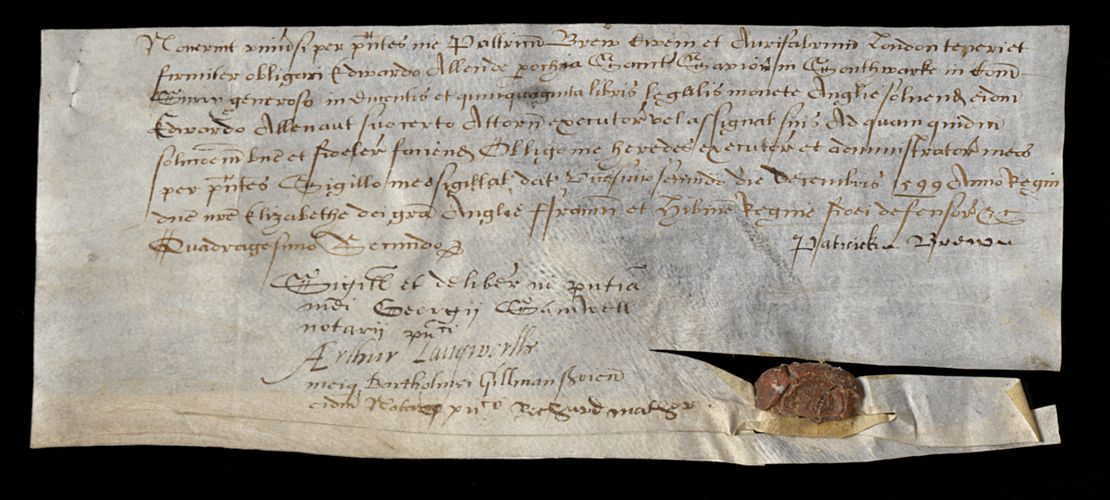 Noverint univ'si per p'ntes me Patricium Brew Civem et Aurifabrum London teneri et
firmiter obligari Edwardo Allen de p'ochia Sancti Savioris in Southwarke in Com
Surr generoso in ducentis et quinquaginta libris legalis monete Anglie solvend eidm
Edwardo Allen aut suo certo Attorn executor vel assignat suis Ad quam quidm
soluc'oem bene et fidelr faciend Obligo me heredes executor et administrator meos
per p'ntes Sigillo meo sigillat dat Vicesimo secundo die Decembris 1599 Anno Regni
dne nre Elizabethe dei gra Anglie ffranc et Hibnie Regine fidei defensor &c
Quadragesimo Secundo
Patricke Brewe
Sigill et deliber in p'ntia
mei Georgii Samwell
notarii pu'ci
Arthur Langworth
meiq Bartholmei Gillman
eidm Notar Richard